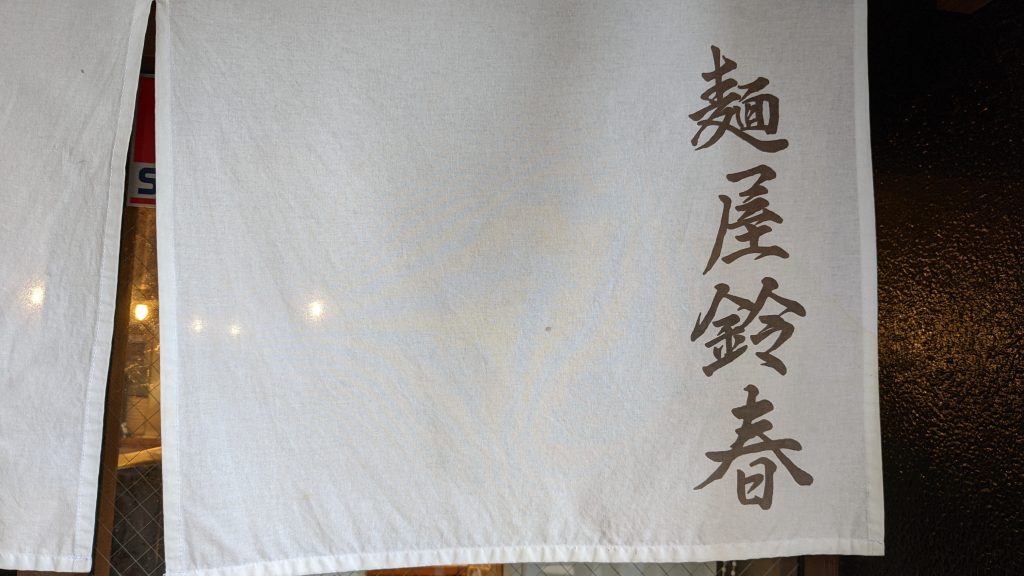 麺屋鈴春
S